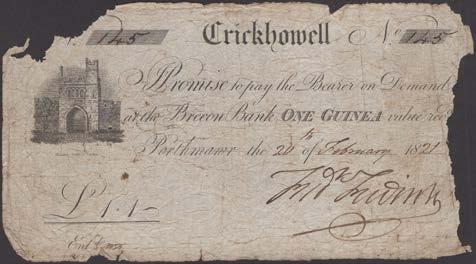 N. 145 Crickhowell No. 145
I Promise to pay the Bearer on Demand
at the Brecon Bank ONE GUINEA value rec
Porthmawr the 20th of February 1821
£1.1.-
Entd